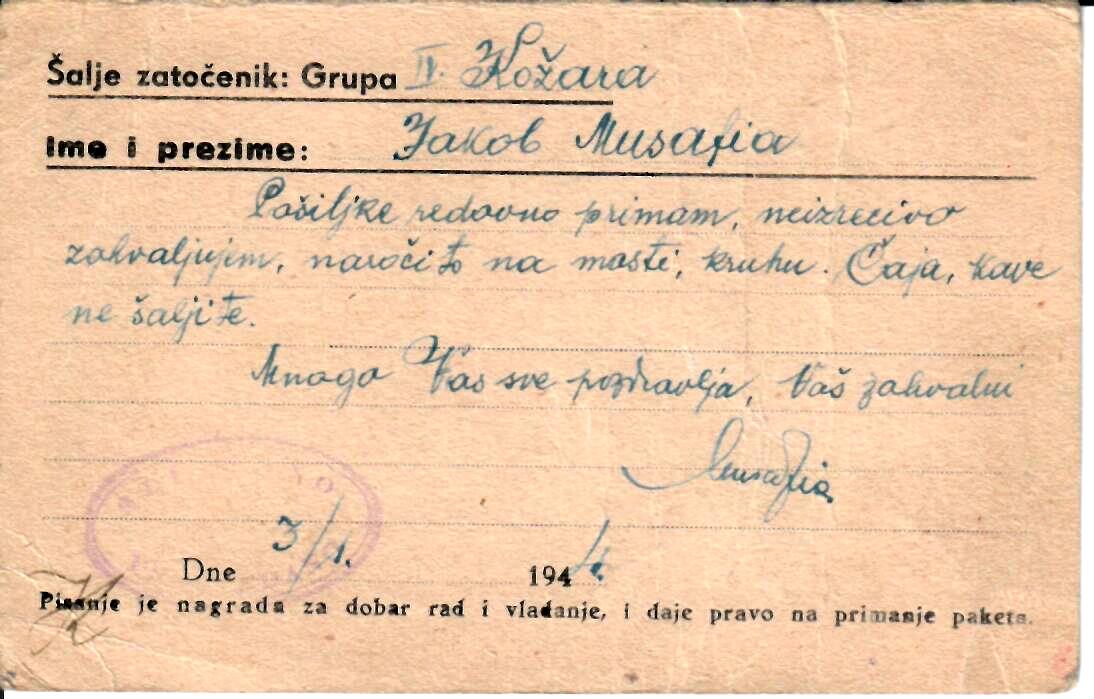 Šalje zatočenik: Grupa II. Kožara
Ime i prezime: Jakob Musafia
Pošiljke redovno primam, neizrecivo
zahvaljujem, naročito na masti, kruhu. Čaja, kave
ne šaljite.
Mnogo Vas sve pozdravlja, Vaš zahvalni
Musafia
Dne 3/1. 194
Pisanje je nagrada za dobar rad i vladanje, i daje pravo na primanje paketa.